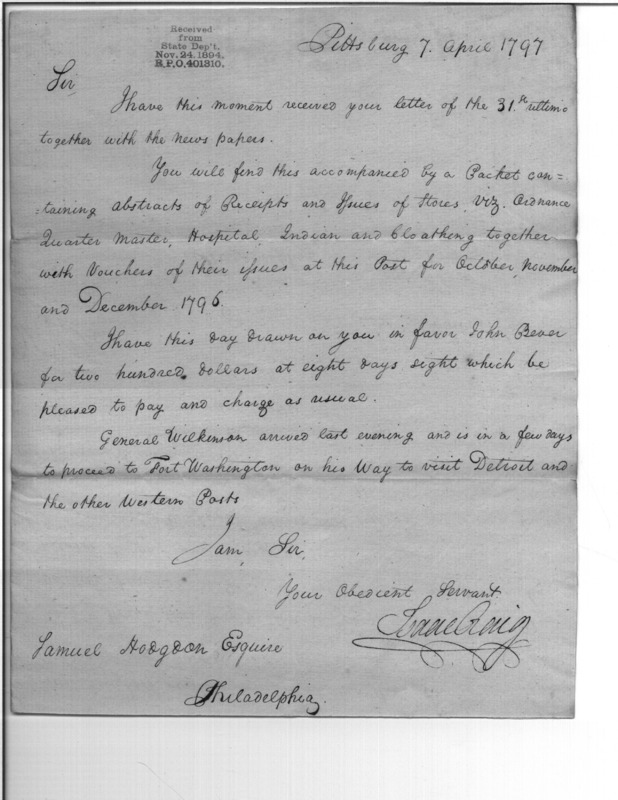 Received
from
State Dep't.
Nov. 24. 1894.
R.P.O. 401310.
Pittsburg 7. April 1797
Sir
I have this moment received your letter of the 31.st ultimo
together with the news papers.
You will find this accompanied by a Packet con=
=taining abstracts of Receipts and Issues of Stores, viz. Ordnance
Quarter Master, Hospital, Indian and Cloathing together
with Vouchers of their issues at this Post for October, November
and December 1796.
I have this day drawn on you in favor John Bever
for two hundred dollars at eight days sight which be
pleased to pay and charge as usual.
General Wilkinson arrived last evening and is in a few days
to proceed to Fort Washington on his Way to visit Detroit and
the other Western Posts
I am, Sir,
Your Obedient Servant
Isaac Craig
Samuel Hodgdon Esquire
Philadelphia.